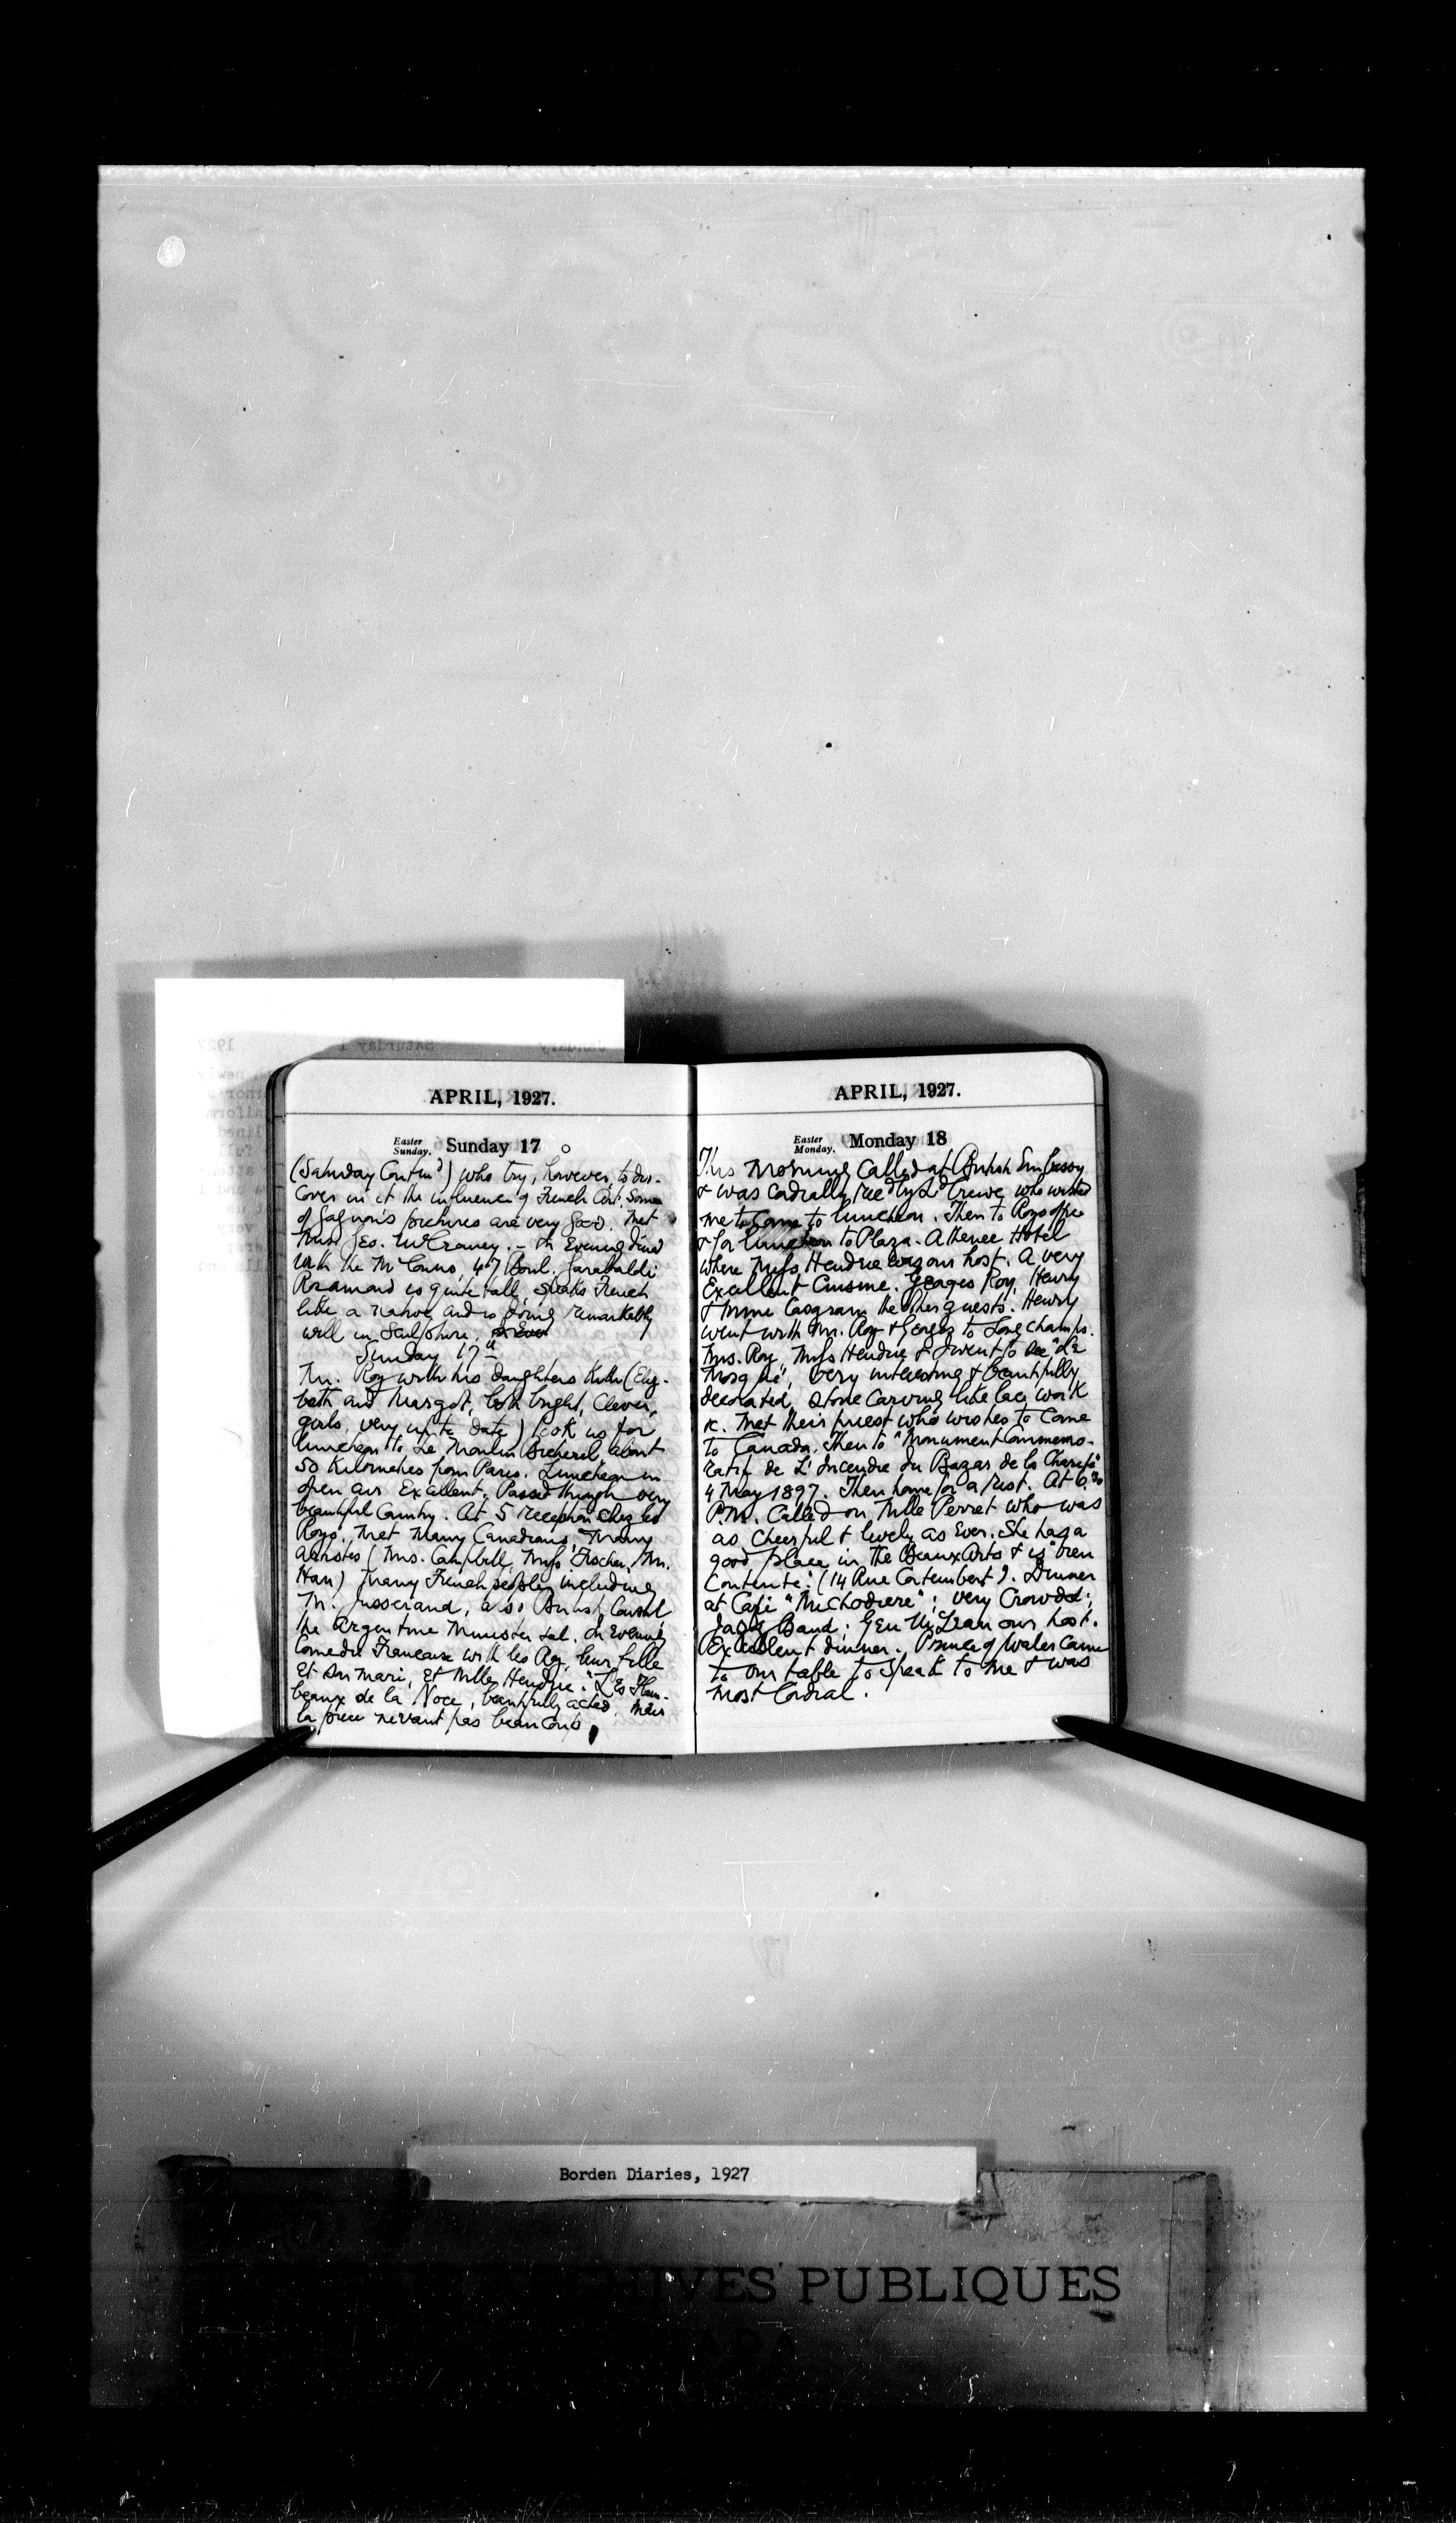 APRIL, 1927.
Easter Sunday. Sunday 17
(Saturday Contind) who try, however, to dis-
cover in it the influence of French Art. Some
of Gagnon's pictures are very good. Met
Geo. McCraney. – In Evening dined
with the 47 Boul. Garabaldi
Rosamond is quite tall, speaks French
like a native and is doing remarkably
well in Sculpture.
Sunday 17th
Mr. Roy with his daughters Ruth (Eliz-
beth and Margot, both bright, clever,
girls, very up to date) took us for
luncheon to Le Moulin Bicherel, about
50 kilometres from Paris. Luncheon in
open air Excellent. Passed through very
beautiful country. At 5 reception chez les
Roys. Met many Canadians, many
artistes (Mrs. Campbell, Miss Fischer, Mr.
Han) many French people including
M. Jusserand, also British Consul,
the Argentine Minister &al. In Evening
Comedie Francaise with les Roy, leur fille
et son mari, et Mlle Hendrie. "Les Flam-
beaux de la Noce, beautifully acted, mais
la piece ne vaut pas beaucoup
APRIL, 1927.
Easter Monday. Monday 18
This morning called at British Embassy
& was cordially recd by Ld Crewe who wished
me to come to luncheon. Then to Roys office
& for luncheon to Plaza-Athenee Hotel
where Miss Hendrie was our host. A very
Excellent Cuisine. Georges Roy, Henry
& Mme Casgrain the other guests. Henry
went with Mr. Roy & Georges to Longchamps.
Mrs. Roy, Miss Hendrie & I went to see "La
Mosque", very interesting & beautifully
decorated, stone carving like lace work
&c. Met their priest who wishes to come
to Canada. Then to "Monument Commemo-
ratif de L'Incendie du Bazar de la Charité"
4 May 1897. Then home for a rest. At 6.30
P.M. Called on Mlle Perret who was
as cheerful & lively as Ever. She has a
good place in the Beaux Arts & is "bien
contente". (14 Rue Cortembert). Dinner
at Café "Michodiere"; very crowded;
Jazz Band; Gen McLean our host.
Excellent dinner. Prince of Wales came
to our table to speak to me & was
most cordial.
Borden Diaries, 1927
ARCHIVES PUBLIQUES